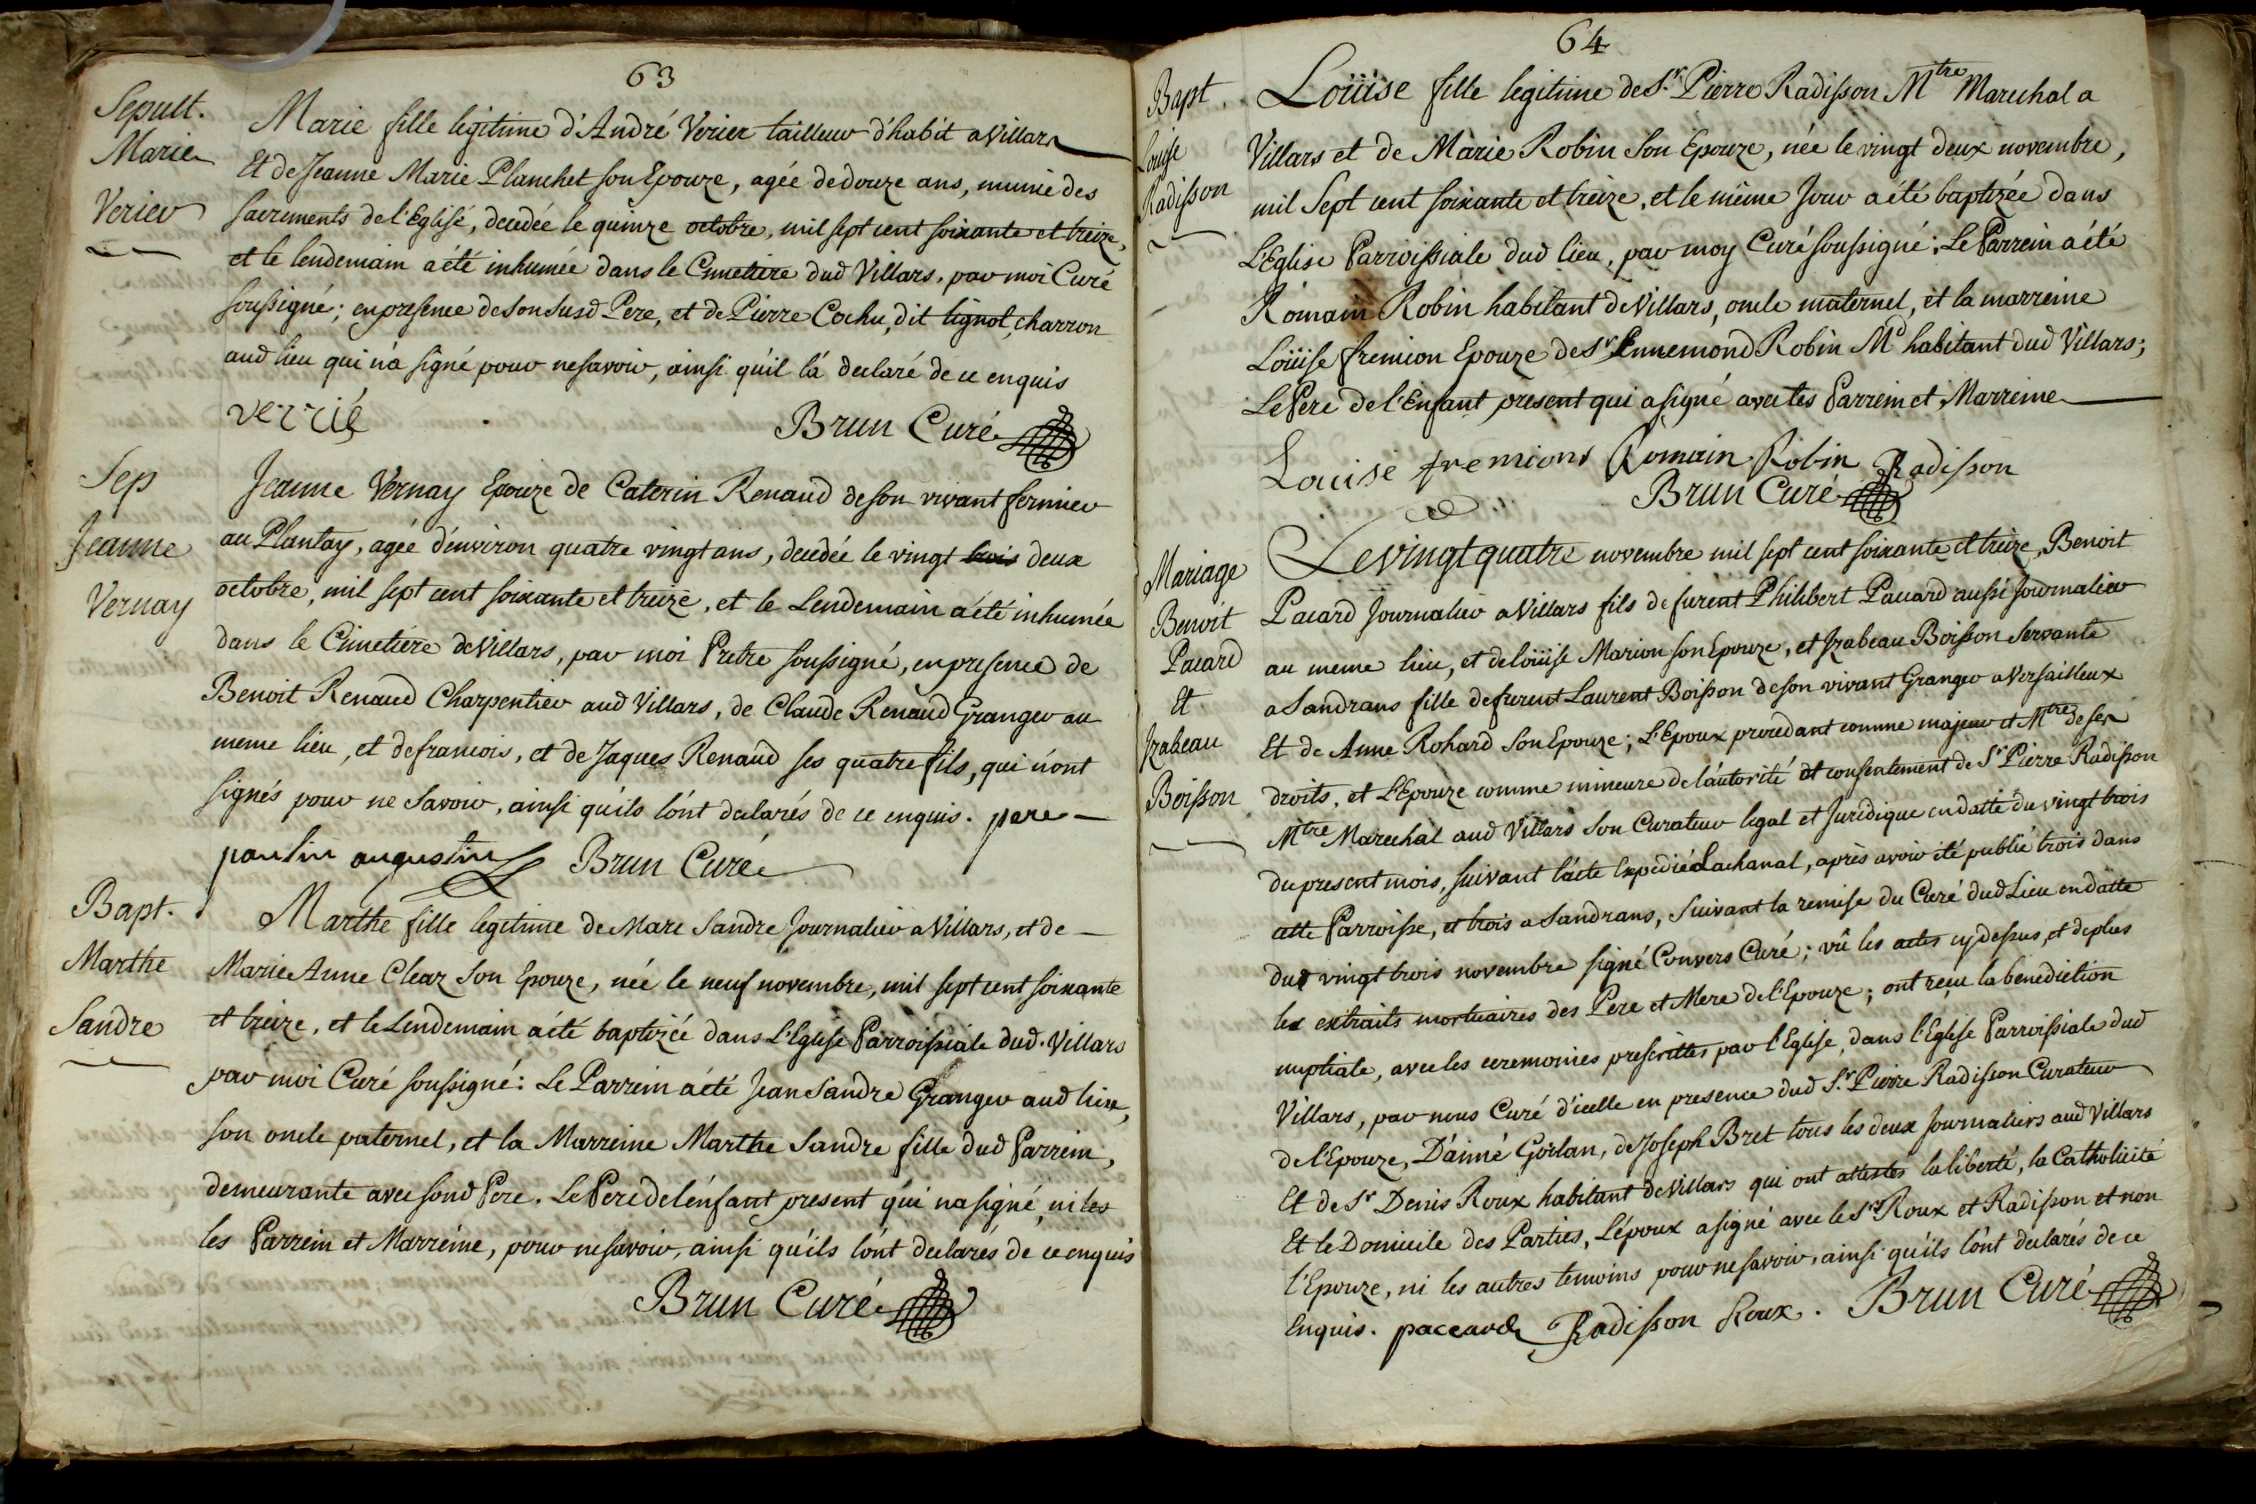 63
Sepult.
Marie
Verier
Marie fille legitime d'André Verier tailleur d'habit a Villars
Et de Jeanne Marie Planchet son Epouze, agée de douze ans, munie des
sacrements de l'Eglise, decedée le quinze octobre, mil sept cent soixante et treize,
et le lendemain a été inhumée dans le Cimetiere dud Villars, par moi Curé
soussigné; en presence de son susd Pere, et de Pierre Cochu, dit lignol, charron
aud lieu qui n'a signé pour ne savoir, ainsi qu'il l'a declaré de ce enquis
verrié
Brun Curé
Sep
Jeanne
Vernay
Jeanne Vernay Epouze de Caterin Renaud de son vivant fermier
au Plantay, agée d'environ quatre vingt ans, decedée le vingt trois deux
octobre, mil sept cent soixante et treize, et le Lendemain a été inhumée
dans le Cimetiere de Villars, par moi Pretre soussigné, en presence de
Benoit Renaud Charpentier aud Villars, de Claude Renaud Granger au
meme lieu, et de francois, et de Jaques Renaud ses quatre fils, qui n'ont
signés pour ne Savoir, ainsi qu'ils l'ont declarés de ce enquis. pere
paulin augustin Brun Curé
Bapt.
Marthe
Sandre
Marthe fille legitime de Marc Sandre Journalier a Villars, et de
Marie Anne Clear Son Epouze, née le neuf novembre, mil sept cent soixante
et treize, et le Lendemain a été baptizée dans L'Eglise Parroissiale dud. Villars
par moi Curé soussigné: Le Parrein a été Jean Sandre Granger aud lieu,
son oncle paternel, et la Marreine Marthe Sandre fille dud Parrein,
demeurante avec sond Pere. Le Pere de l'enfant present qui na signé, ni les
les Parrein et Marreine, pour ne savoir, ainsi qu'ils l'ont declarés de ce enquis
Brun Curé
64
Bapt
Louise
Radisson
Loüise fille legitime de Sr. Pierre Radisson Mtre Marechal a
Villars et de Marie Robin Son Epouze, née le vingt deux novembre,
mil Sept cent soixante et treize, et le même Jour a été baptizée dans
L'Eglise Parroissiale dud lieu, par moy Curé soussigné; Le Parrein a été
Romain Robin habitant de Villars, oncle maternel, et la marreine
Loüise fremion Epouze de Sr Ennemond Robin Md habitant dud Villars;
Le Pere de l'Enfant present qui a signé avec les Parrein et Marreine
Louise fremions Romain Robin Radisson
Brun Curé
Mariage
Benoit
Pacard
Et
Izabeau
Boisson
Le vingt quatre novembre mil sept cent soixante et treize, Benoit
Pacard Journalier a Villars fils de furent Philibert Pacard aussi Journalier
au meme lieu, et de loüise Marion son Epouze, et Izabeau Boisson Servante
a Sandrans fille de furent Laurent Boisson de son vivant Granger a Versailleux
Et de Anne Rohard Son Epouze; L'Epoux procedant comme majeur et Mtre de ses
droits, et L'Epouze comme mineure de l'autorité et consentement de Sr Pierre Radisson
Mtre Marechal aud Villars son Curateur legal et Juridique en datte du vingt trois
du present mois, suivant l'acte Expedié Lachanal, après avoir été publié trois dans
cette Parroisse, et trois a Sandrans, Suivant la remise du Curé dud Lieu en datte
dud vingt trois novembre signé Convers Curé; vû les actes cy dessus, et de plus
les extraits mortuaires des Pere et Mere de l'Epouze; ont reçu la benediction
nuptiale, avec les ceremonies prescrittes par l'Eglise, dans l'Eglise Parroissiale dud
Villars, par nous Curé d'icelle en presence dud Sr. Pierre Radisson Curateur
de l'Epouze, D'aimé Gorlan, de Joseph Bret tous les deux Journaliers aud Villars
Et de Sr Denis Roux habitant de Villars qui ont attestés la liberté, la Catholicité
Et le Domicile des Parties, L'époux a signé avec le Sr Roux et Radisson et non
l'Epouze, ni les autres temoins pour ne savoir, ainsi qu'ils l'ont declarés de ce
Enquis. paccard Radisson Roux. Brun Curé